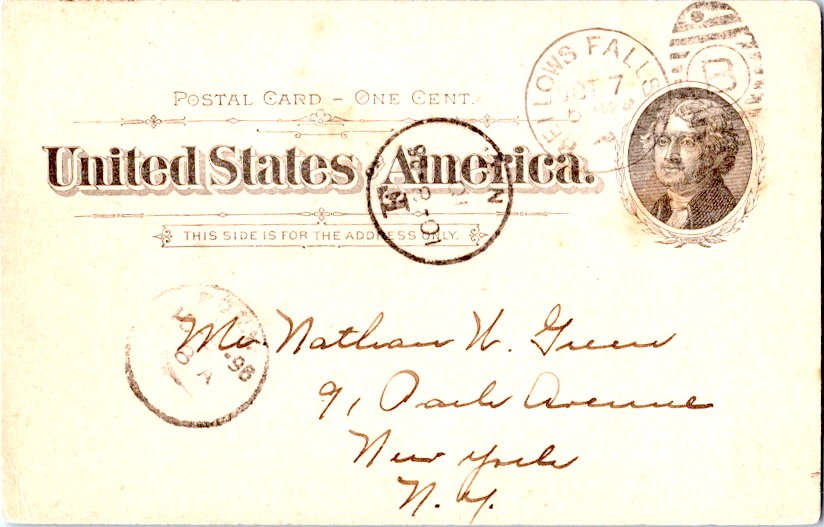 POSTAL CARD – ONE CENT.
United States America.
THIS SIDE IS FOR THE ADDRESS ONLY.
BELLOWS FALLS
OCT 7
B
10-8
N
96
8 A
Mr. Nathan W. Green
91 Park Avenue
New York
N.Y.